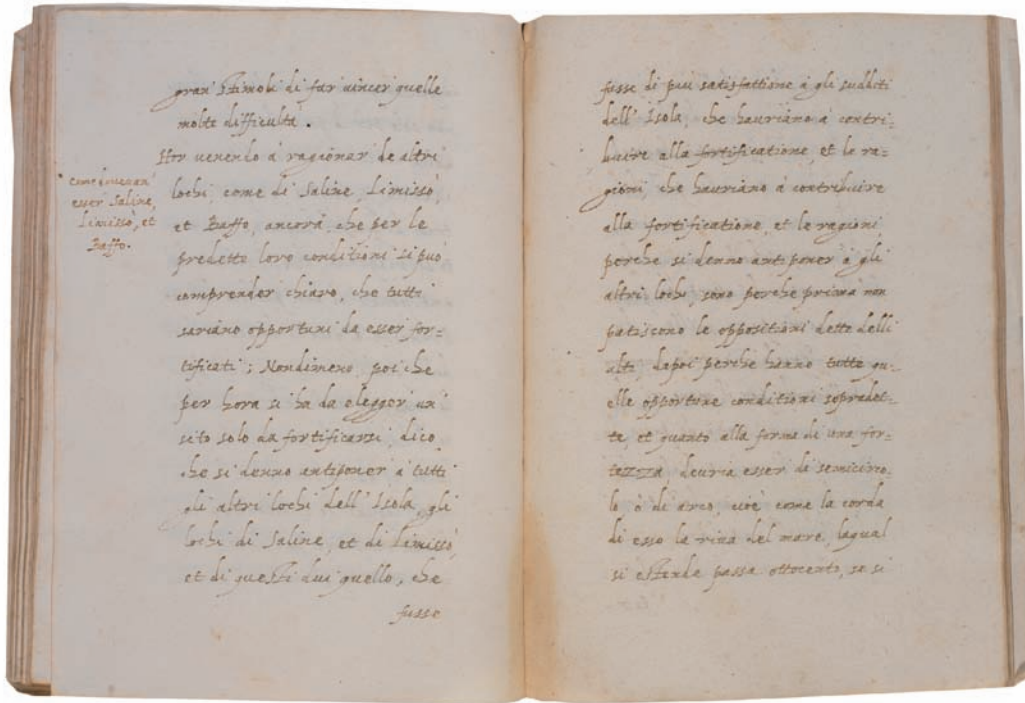 gran stimoli di far vincer quelle
molte difficulta.
Hor venendo à ragionar de altri
lochi, come di Saline, Limissò,
et Baffo, ancorà, che per le
predette loro conditioni si può
comprender chiaro, che tutti
sariano opportuni da esser for-
tificati; Nondimeno, poi che
per hora si ha da elegger un
sito solo da fortificarsi, dico,
che si denno antiponer à tutti
gli altri lochi dell' Isola, gli
lochi di Saline, et di Limissò,
et di questi dui quello, che
fusse
esser Saline,
Limissò, et
Baffo.
fusse di piu satisfattione à gli sudditi
dell' Isola, che hauriano à contri-
buire alla fortificatione, et le ra-
gioni, che hauriano à contribuire
alla fortificatione, et le ragioni
perche si denno antiponer à gli
altri lochi, sono perche prima non
patiscono le oppositioni dette delli
alti, dapoi perche hanno tutte qu-
elle opportune conditioni sopradet-
te, et quanto alla forma di una for-
tezza, deuria esser di semicirco-
lo, ò di arco, cioè come la corda
di esso la riua del mare, laqual
si estende passa ottocento, se si